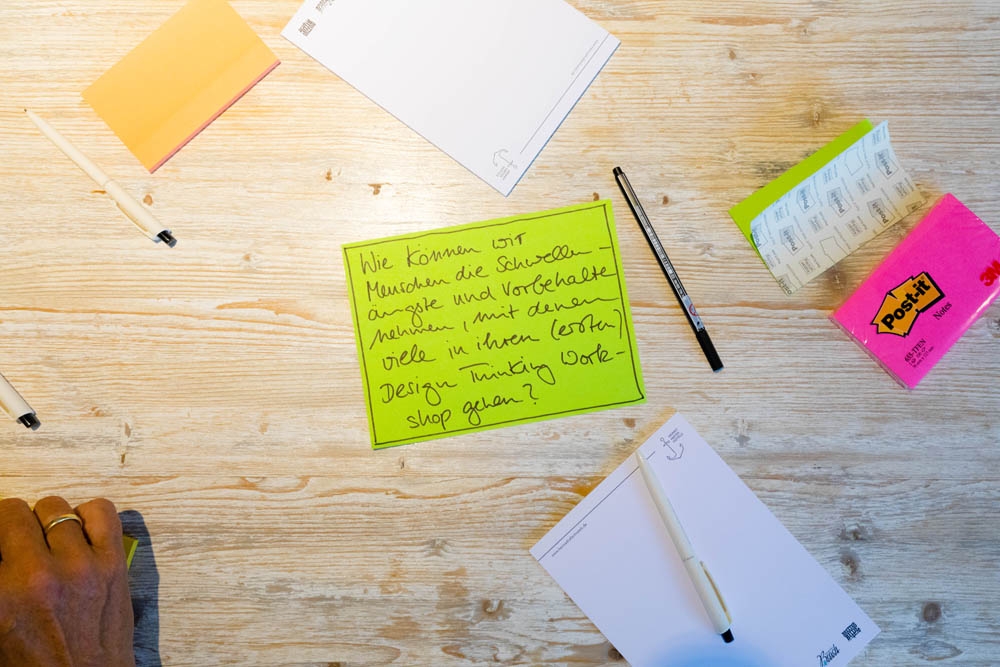 Wie können wir
Menschen die Schwellen-
ängste und Vorbehalte
nehmen, mit denen
viele in ihren (ersten)
Design Thinking Work-
shop gehen?
Post-it
Post-it
Notes
3M